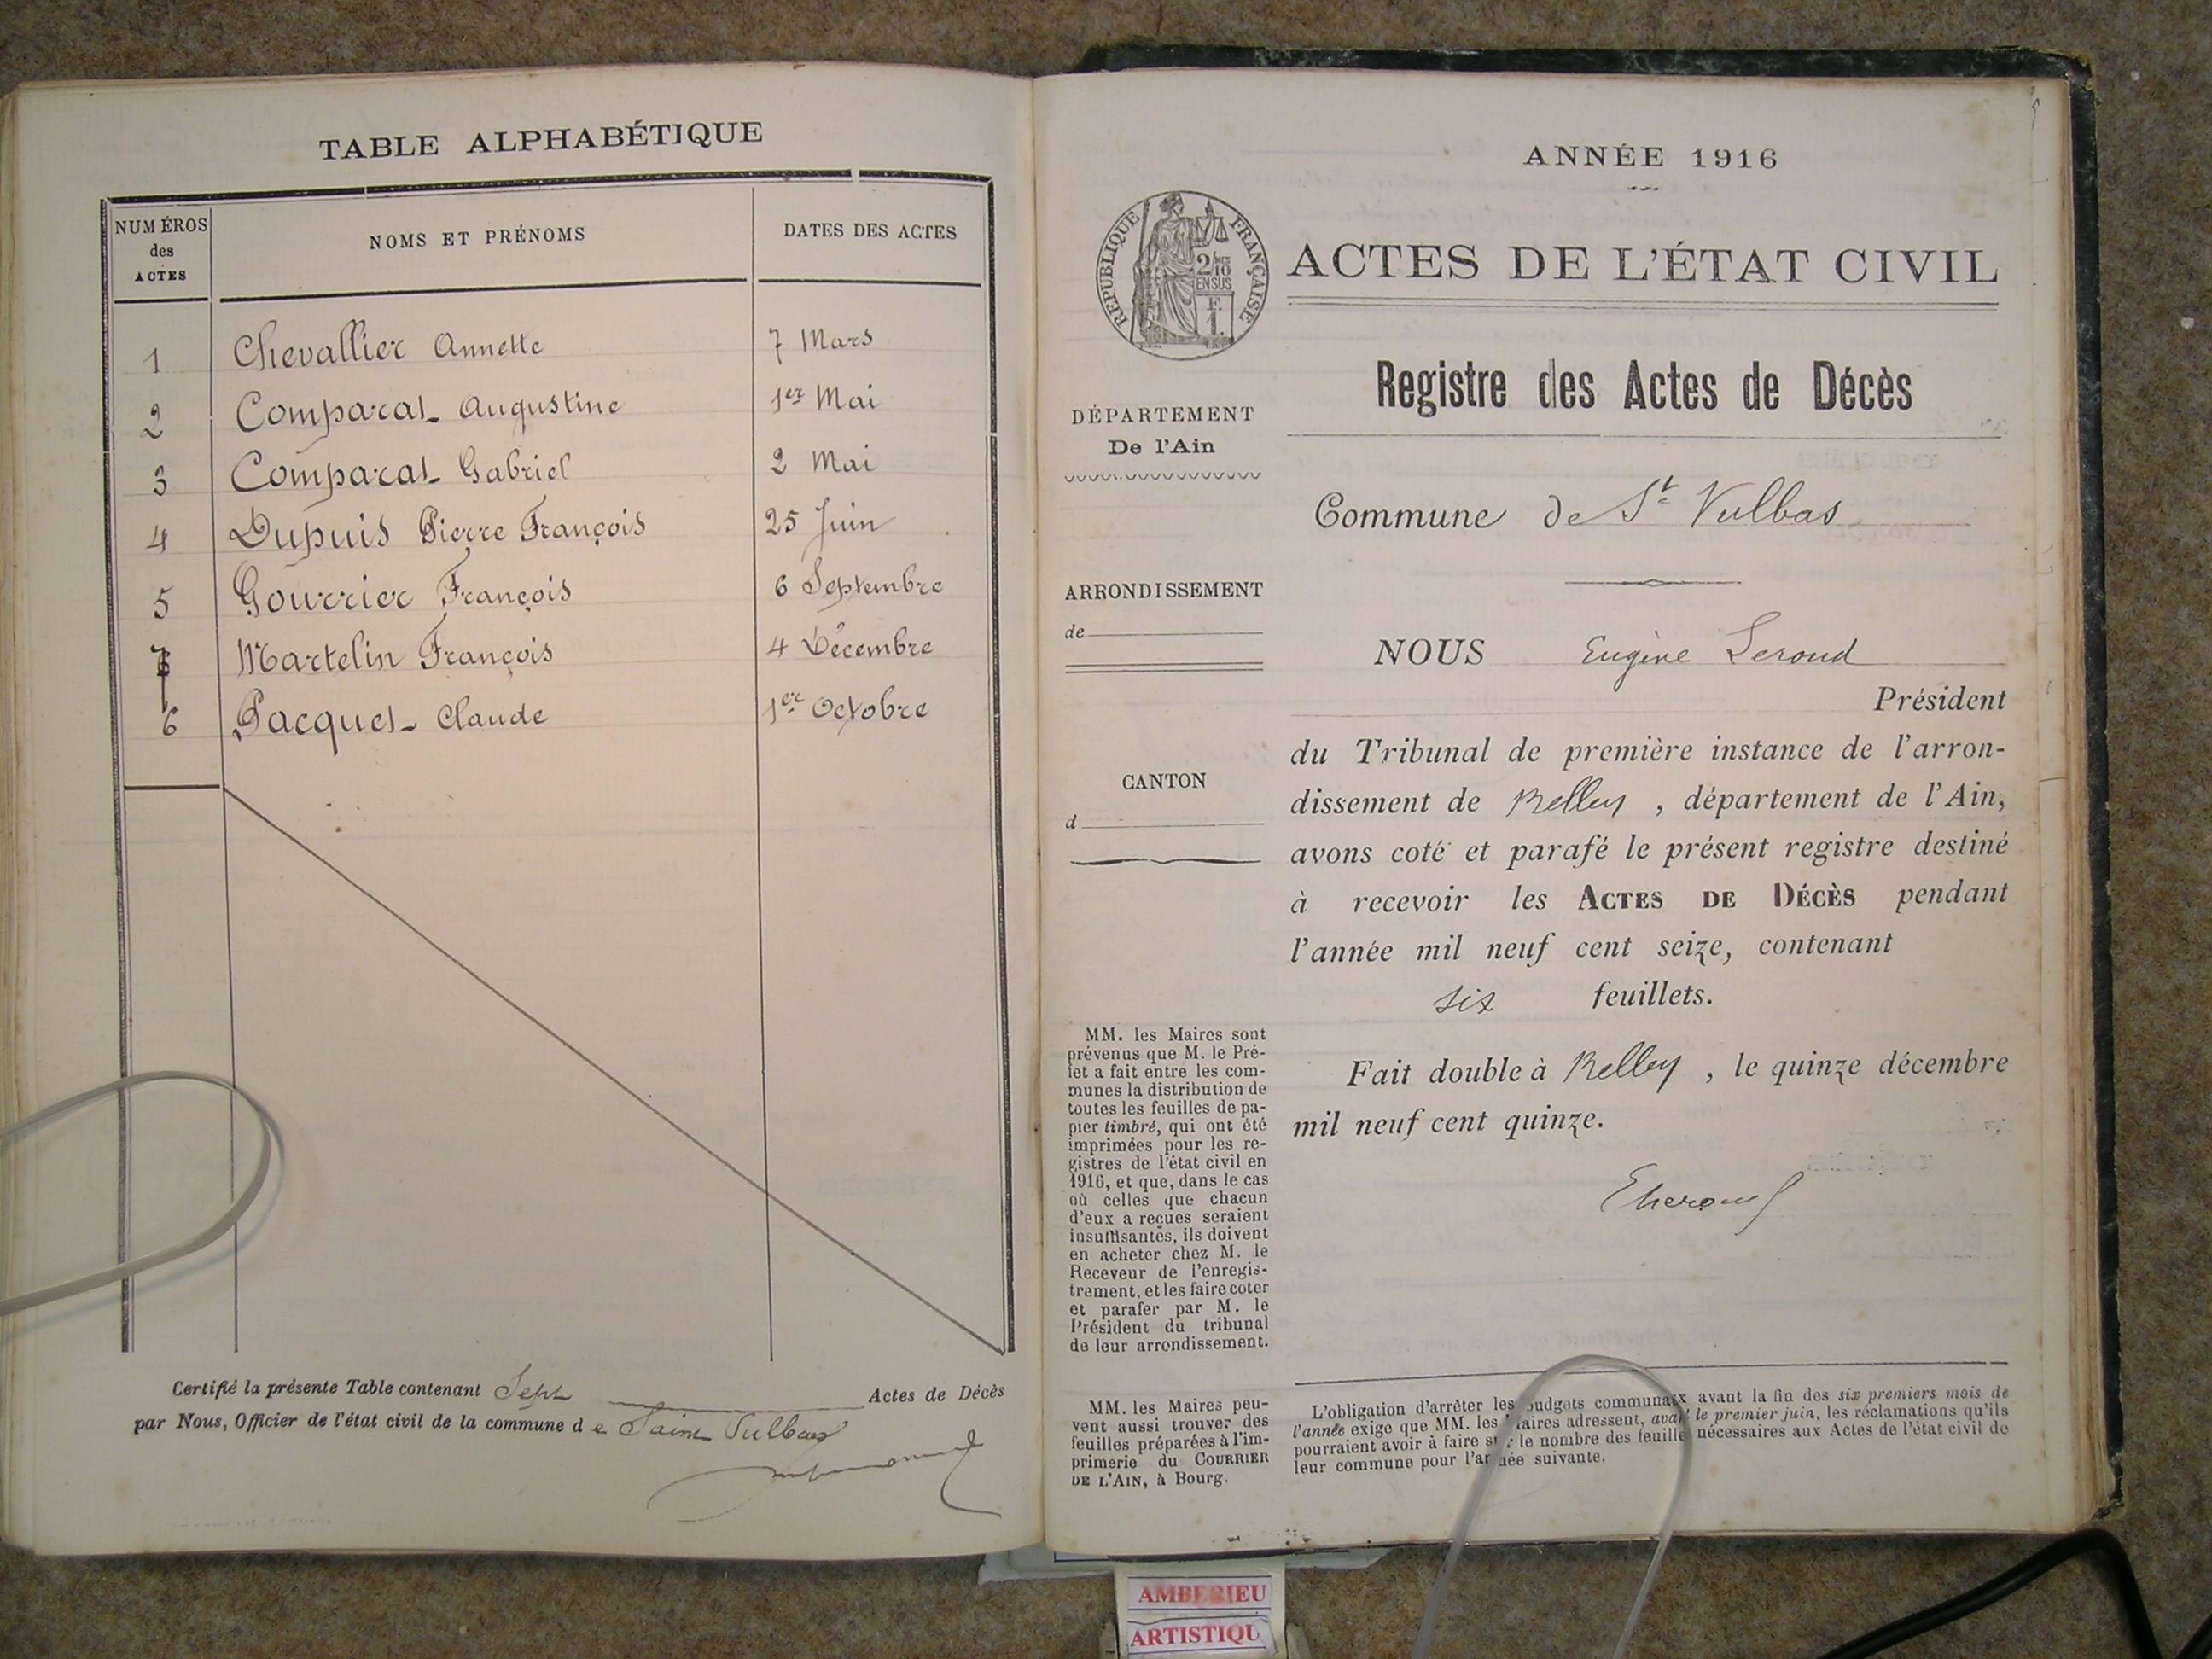 TABLE ALPHABÉTIQUE
NUMÉROS
des
ACTES
NOMS ET PRÉNOMS
DATES DES ACTES
1 Chevallier Annette 7 Mars
2 Comparat Augustine 1er Mai
3 Comparat Gabriel 2 Mai
4 Dupuis Pierre François 25 Juin
5 Gourrier François 6 Septembre
7 Martelin François 4 Décembre
6 Pacquet Claude 1er Octobre
Certifié la présente Table contenant Sept Actes de Décès
par Nous, Officier de l'état civil de la commune de Saint Vulbas
ANNÉE 1916
RÉPUBLIQUE FRANÇAISE
2/10
EN SUS
F.
1.
ACTES DE L'ÉTAT CIVIL
Registre des Actes de Décès
DÉPARTEMENT
De l'Ain
Commune de St Vulbas
ARRONDISSEMENT
de
CANTON
d
NOUS Eugène Leroud
Président
du Tribunal de première instance de l'arron-
dissement de Belley, département de l'Ain,
avons coté et parafé le présent registre destiné
à recevoir les ACTES DE DÉCÈS pendant
l'année mil neuf cent seize, contenant
six feuillets.
Fait double à Belley, le quinze décembre
mil neuf cent quinze.
MM. les Maires sont
prévenus que M. le Pré-
fet a fait entre les com-
munes la distribution de
toutes les feuilles de pa-
pier timbré, qui ont été
imprimées pour les re-
gistres de l'état civil en
1916, et que, dans le cas
où celles que chacun
d'eux a reçues seraient
insuffisantes, ils doivent
en acheter chez M. le
Receveur de l'enregis-
trement, et les faire coter
et parafer par M. le
Président du tribunal
de leur arrondissement.
MM. les Maires peu-
vent aussi trouver des
feuilles préparées à l'im-
primerie du COURRIER
DE L'AIN, à Bourg.
L'obligation d'arrêter les budgets communaux avant la fin des six premiers mois de
l'année exige que MM. les Maires adressent, avant le premier juin, les réclamations qu'ils
pourraient avoir à faire sur le nombre des feuilles nécessaires aux Actes de l'état civil de
leur commune pour l'année suivante.
AMBERIEU
ARTISTIQU